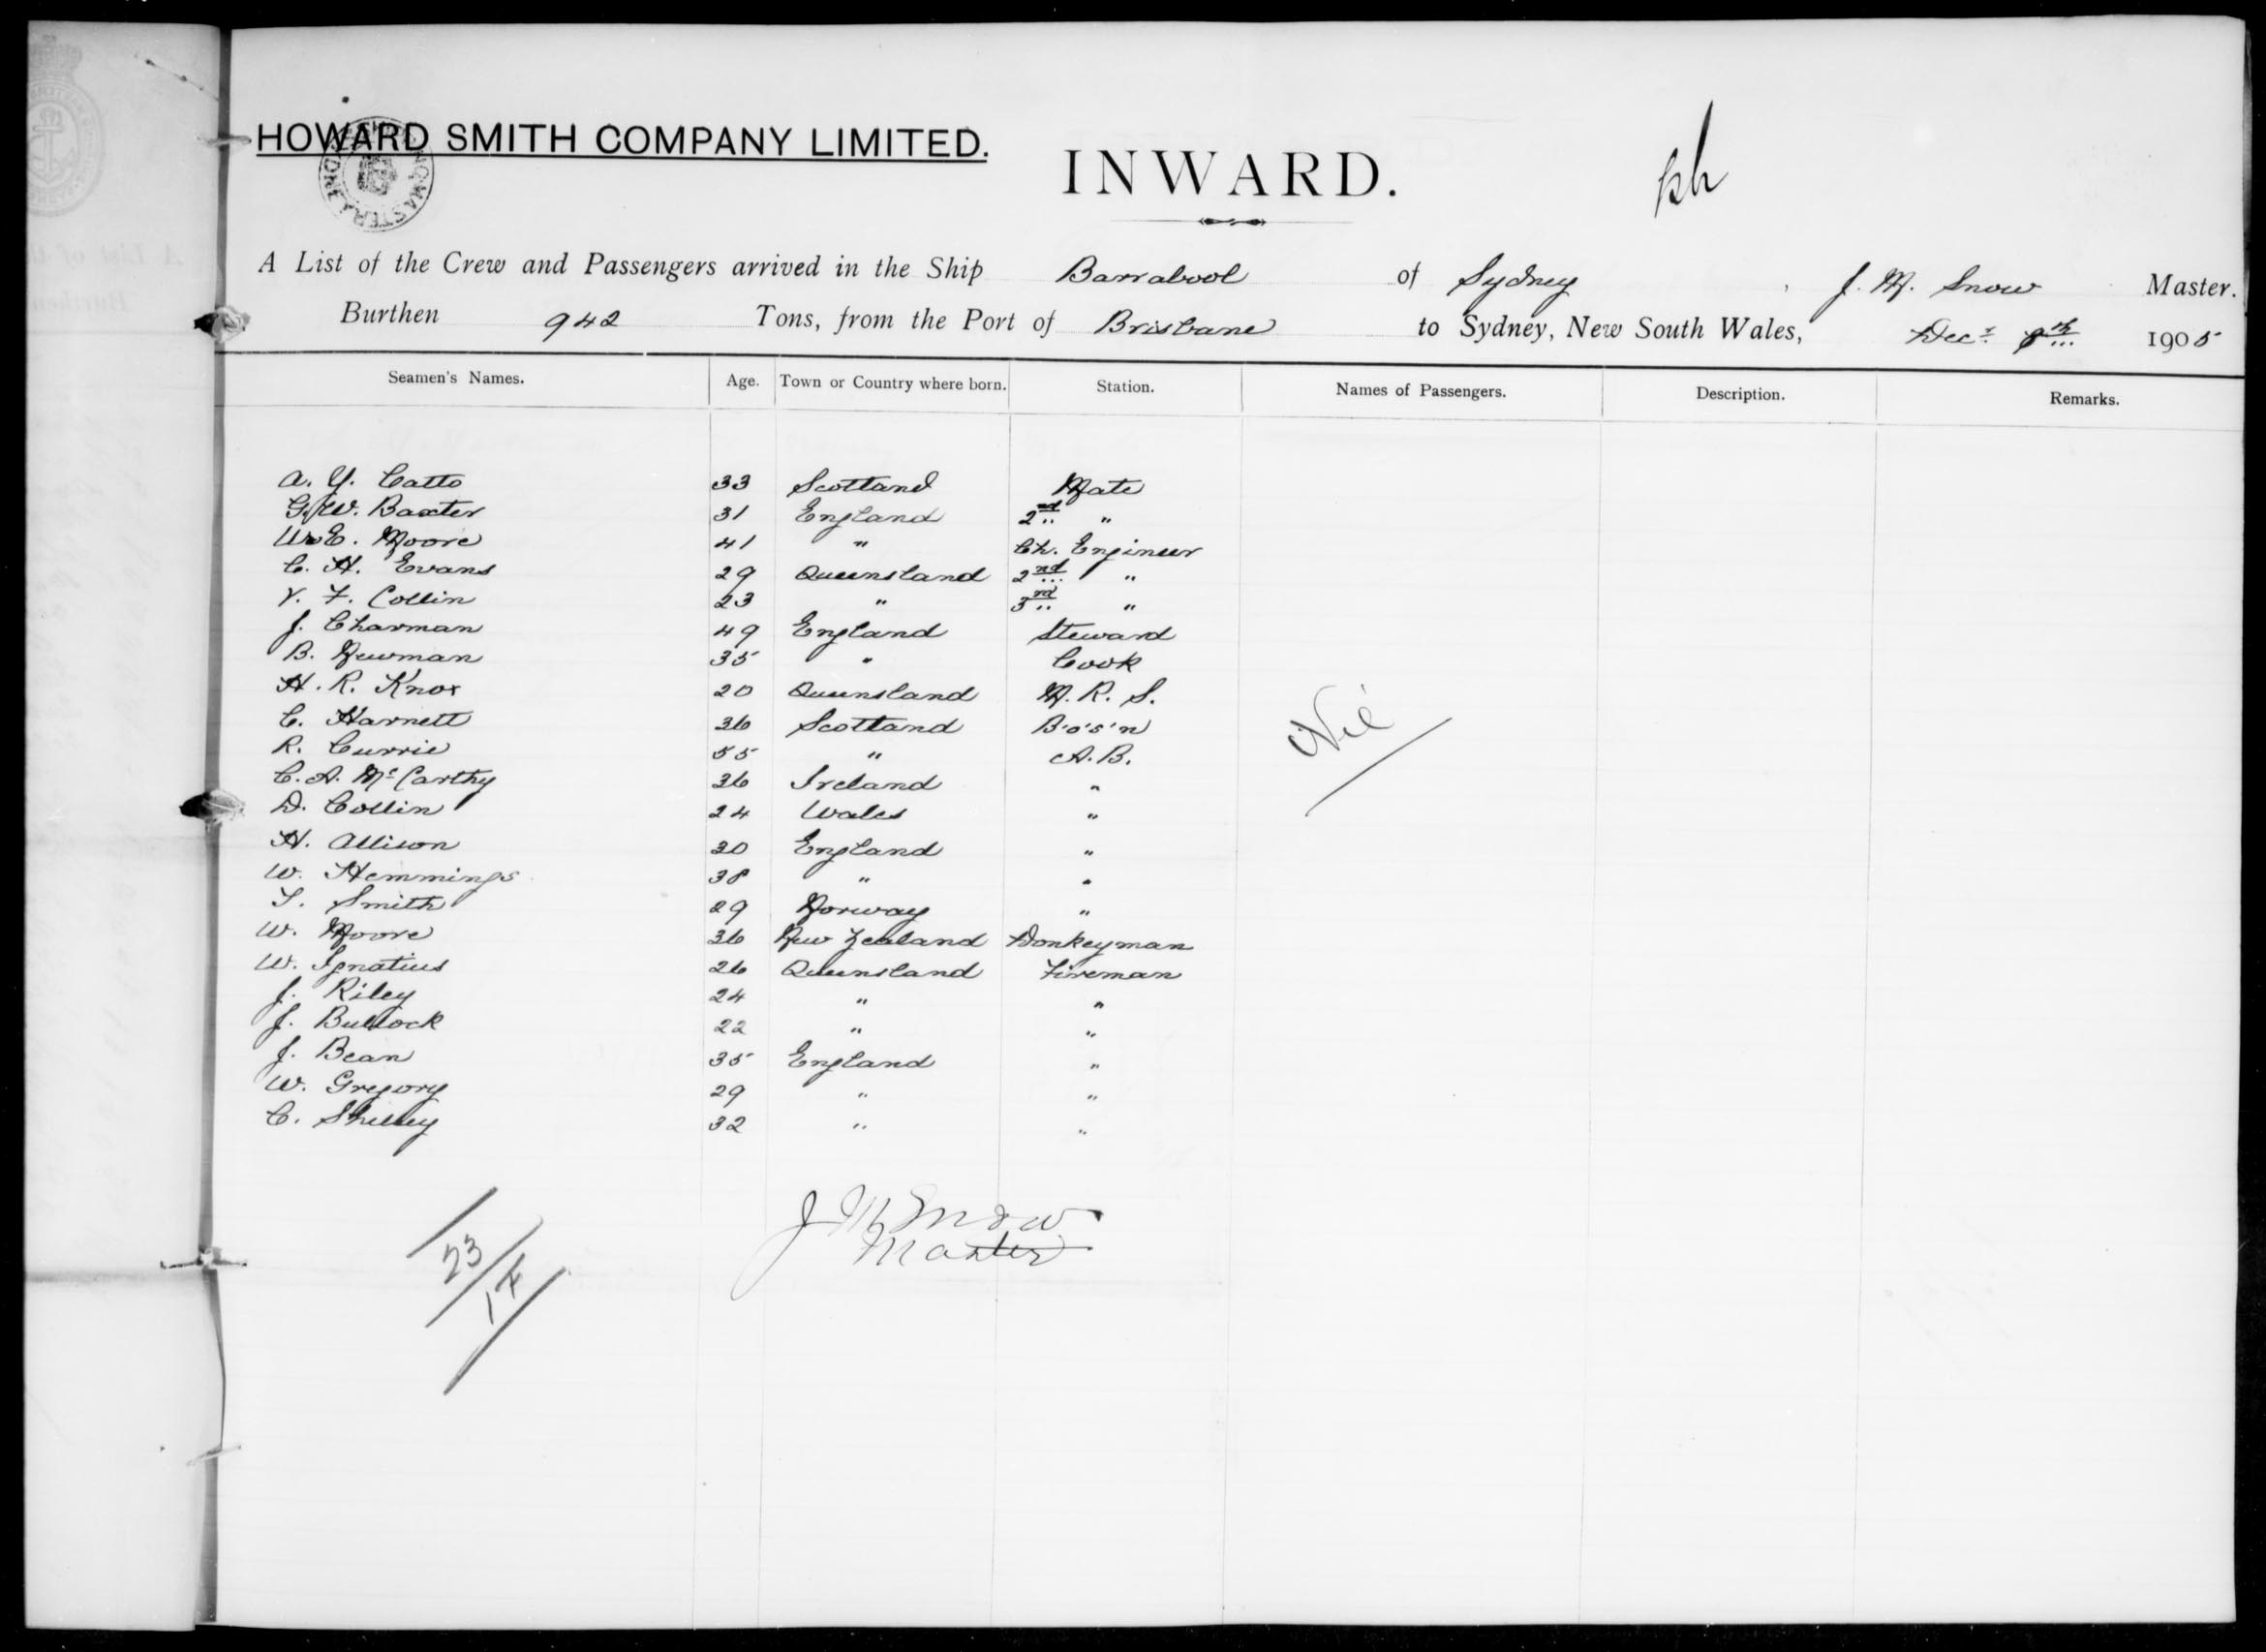 HOWARD SMITH COMPANY LIMITED.
INWARD.
A List of the Crew and Passengers arrived in the Ship Barrabool of Sydney, J. M. Snow Master.
Burthen 942 Tons, from the Port of Brisbane to Sydney, New South Wales, Decr 8th 1905
Seamen's Names. Age. Town or Country where born. Station. Names of Passengers. Description. Remarks.
A. Y. Catto 33 Scotland Mate
G. W. Baxter 31 England 2nd "
W. E. Moore 41 " Ch. Engineer
C. H. Evans 29 Queensland 2nd "
V. F. Collin 23 " 3rd "
J. Charman 49 England Steward
B. Newman 35 " Cook
H. R. Knox 20 Queensland M. R. S.
C. Harnett 36 Scotland B'o's'n
R. Currie 55 " A.B.
Nil
C. A. McCarthy 36 Ireland "
D. Collin 24 Wales "
H. Allison 30 England "
W. Hemmings 38 " "
T. Smith 29 Norway "
W. Moore 36 New Zealand Donkeyman
W. Ignatius 26 Queensland Fireman
J. Riley 24 " "
J. Bullock 22 " "
J. Bean 35 England "
W. Gregory 29 " "
C. Shelley 32 " "
J M Snow
Master
23